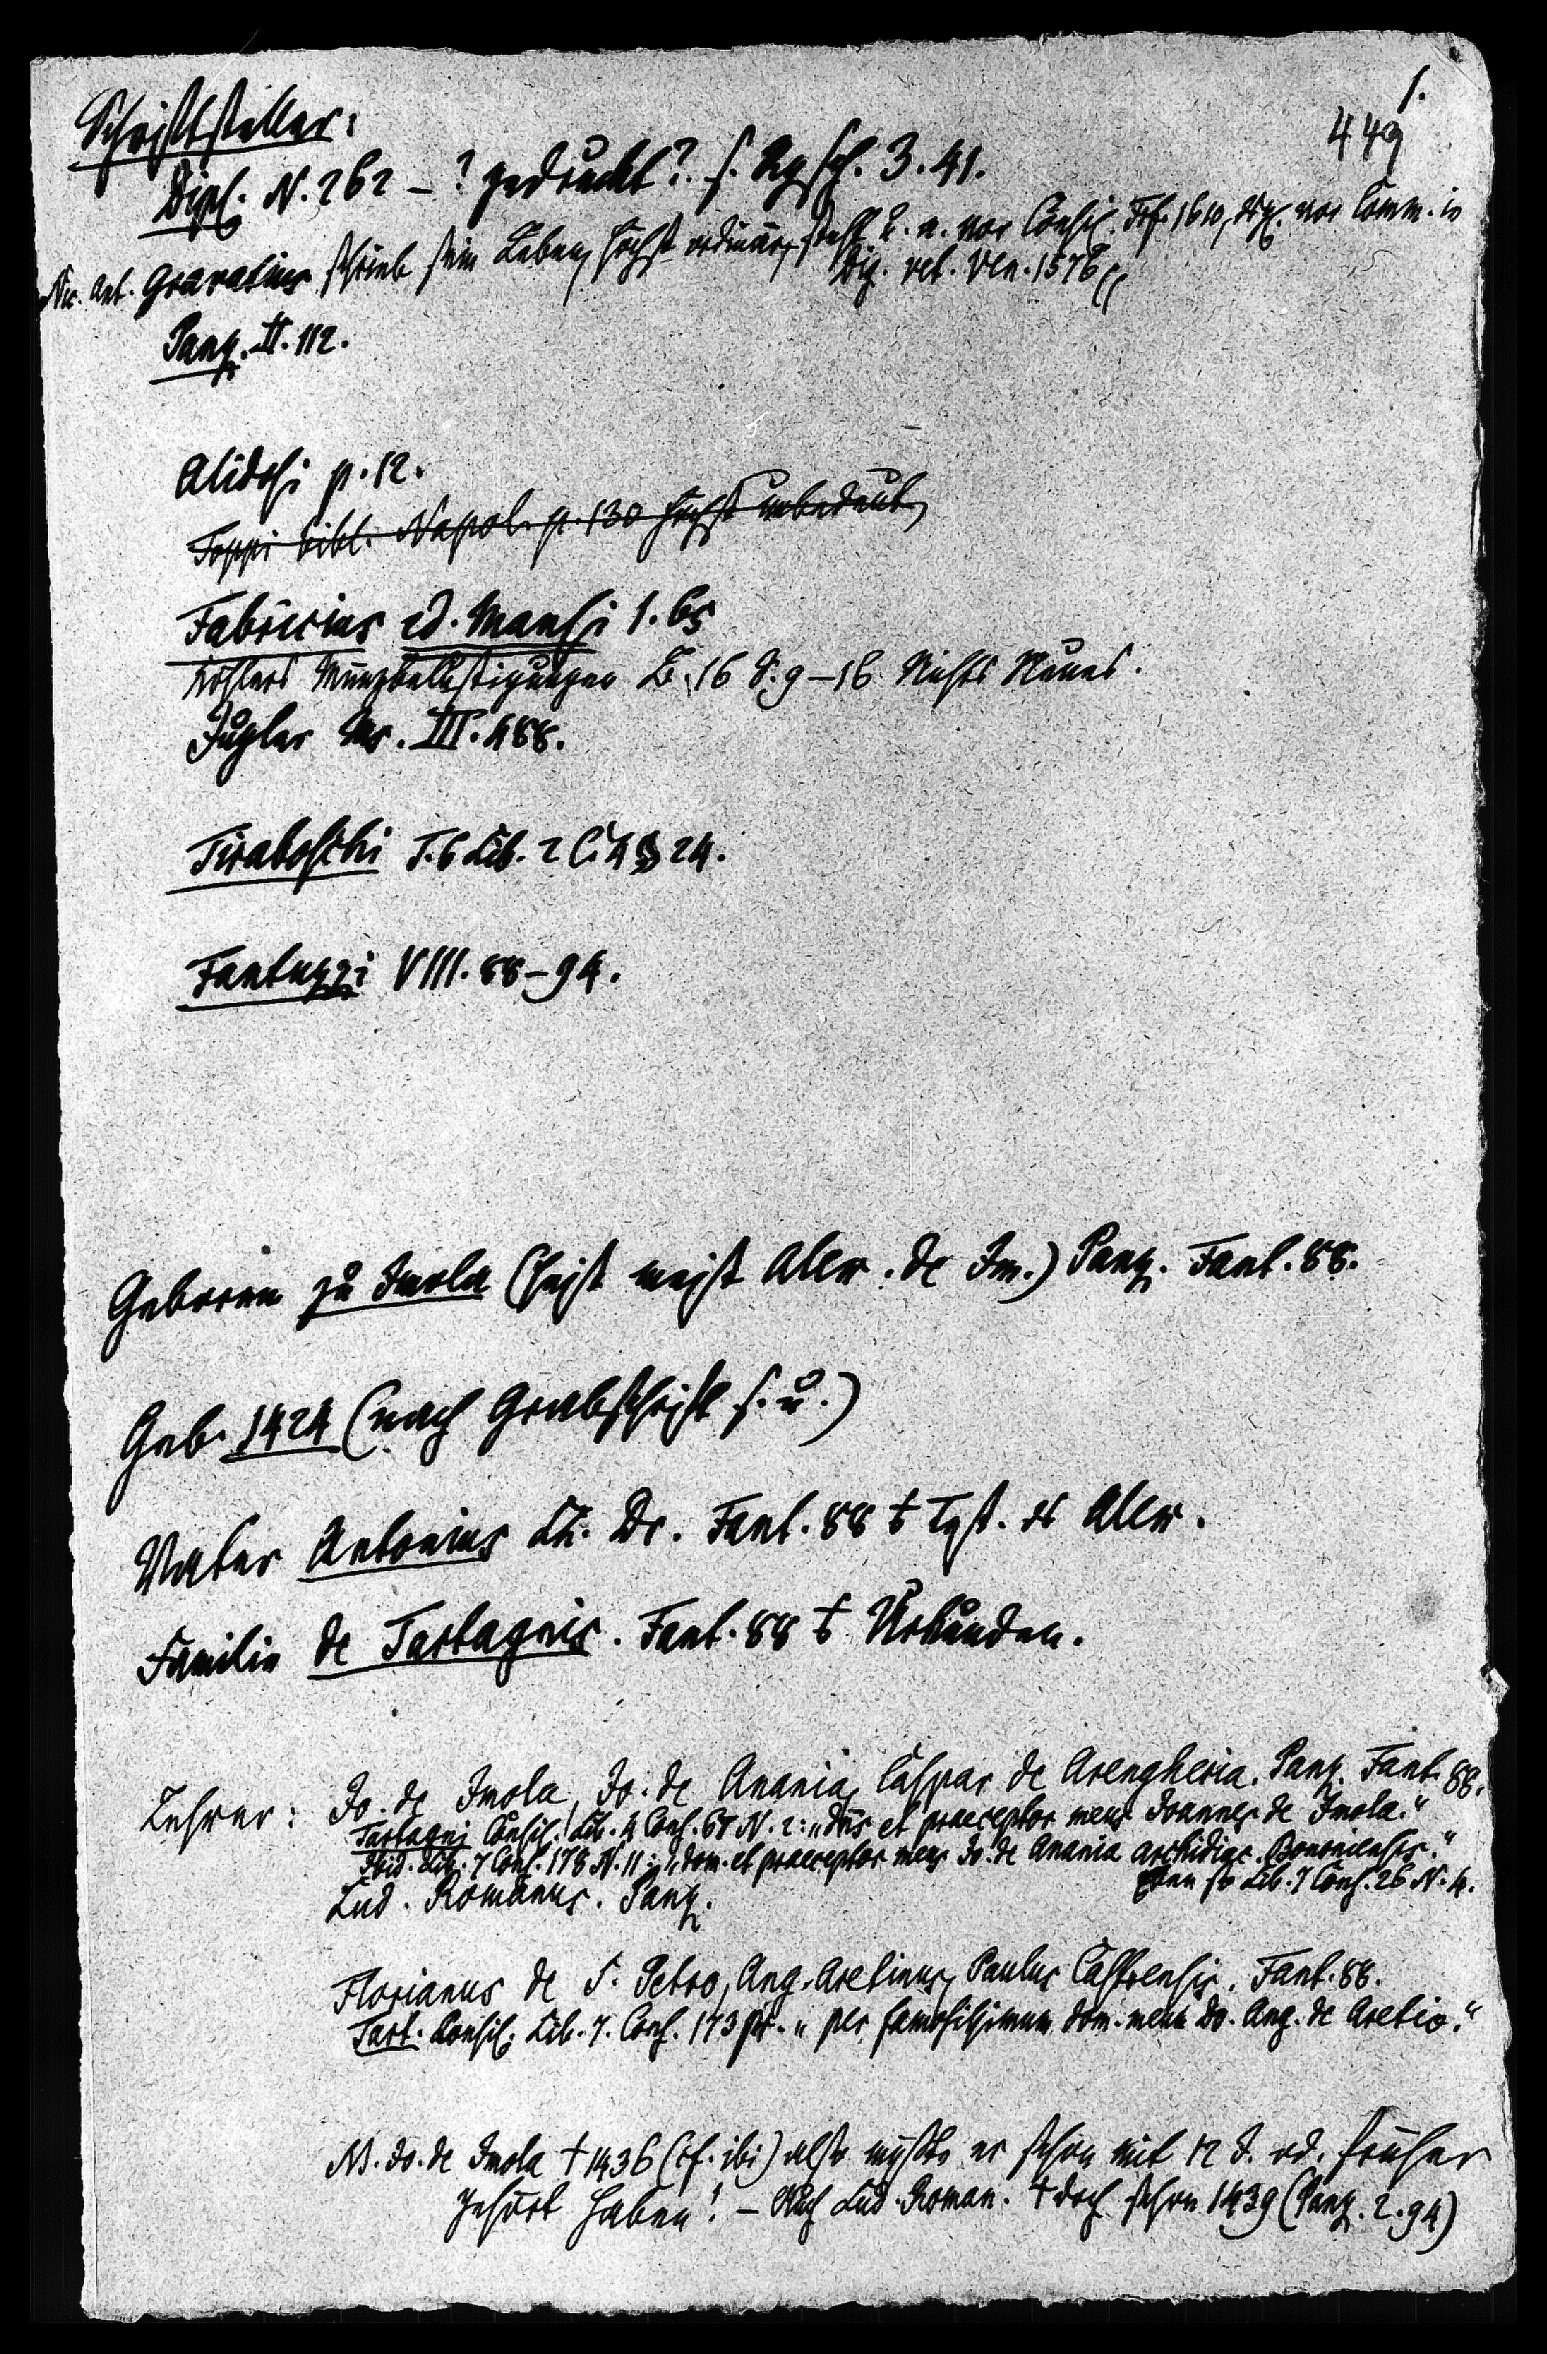 1.
449
Schriftsteller:
Dipl. N. 262 – ? gedruckt? s. 3. 41.
Nic. Ant. Gravatius schrieb sein Leben, höchst ordinär, steht z. B. vor Consil. Frf. 1610, vor Comm. in
Dig. vet. Ven. 1576
Panz. II. 112.
Alidosi p. 12.
Toppi bibl. Napol. p. 130 höchst unbedeut.
Fabricius ed. Mansi 1. 65
Köhlers Münzbelustigungen B. 16 S. 9–16 Nichts Neues.
Jugler Ms. III. 488.
Tiraboschi T. 6 Lib. 2 C. 4 § 24.
Fantuzzi VIII. 88–94.
Geboren zu Imola (heißt meist Alex. de Im.) Panz. Fant. 88.
Geb. 1424 (nach Grabschrift s. u.)
Vater Antonius Dr. Fant. 88 + Alex.
Familie de Tartagnis. Fant. 88 + Urkunden.
Lehrer: Jo. de Imola, Jo. de Anania, Caspar de Arengheria. Panz. Fant. 88.
Tartagni Consil. Lib. 4 Cons. 68 N. 2: „Dns et praeceptor meus Joannes de Imola.“
Ibid. Lib. 7 Cons. 178 N. 11: „dom. et praeceptor meus Jo. de Anania archidiac. Bononiensis.“
Eben so Lib. 7 Cons. 26 N. 4.
Lud. Romanus. Panz.
Florianus de S. Petro, Ang. Aretinus, Paulus Castrensis. Fant. 88.
Tart. Consil. Lib. 7. Cons. 173 pr. „per famosissimum dom. meum Do. Ang. de Aretio.“
N. Jo. de Imola † 1436 (cf. ibi) also müßte er schon mit 12 J. od. früher
gehört haben! – Auch Lud. Roman. † doch schon 1439 (Panz. 2. 94)